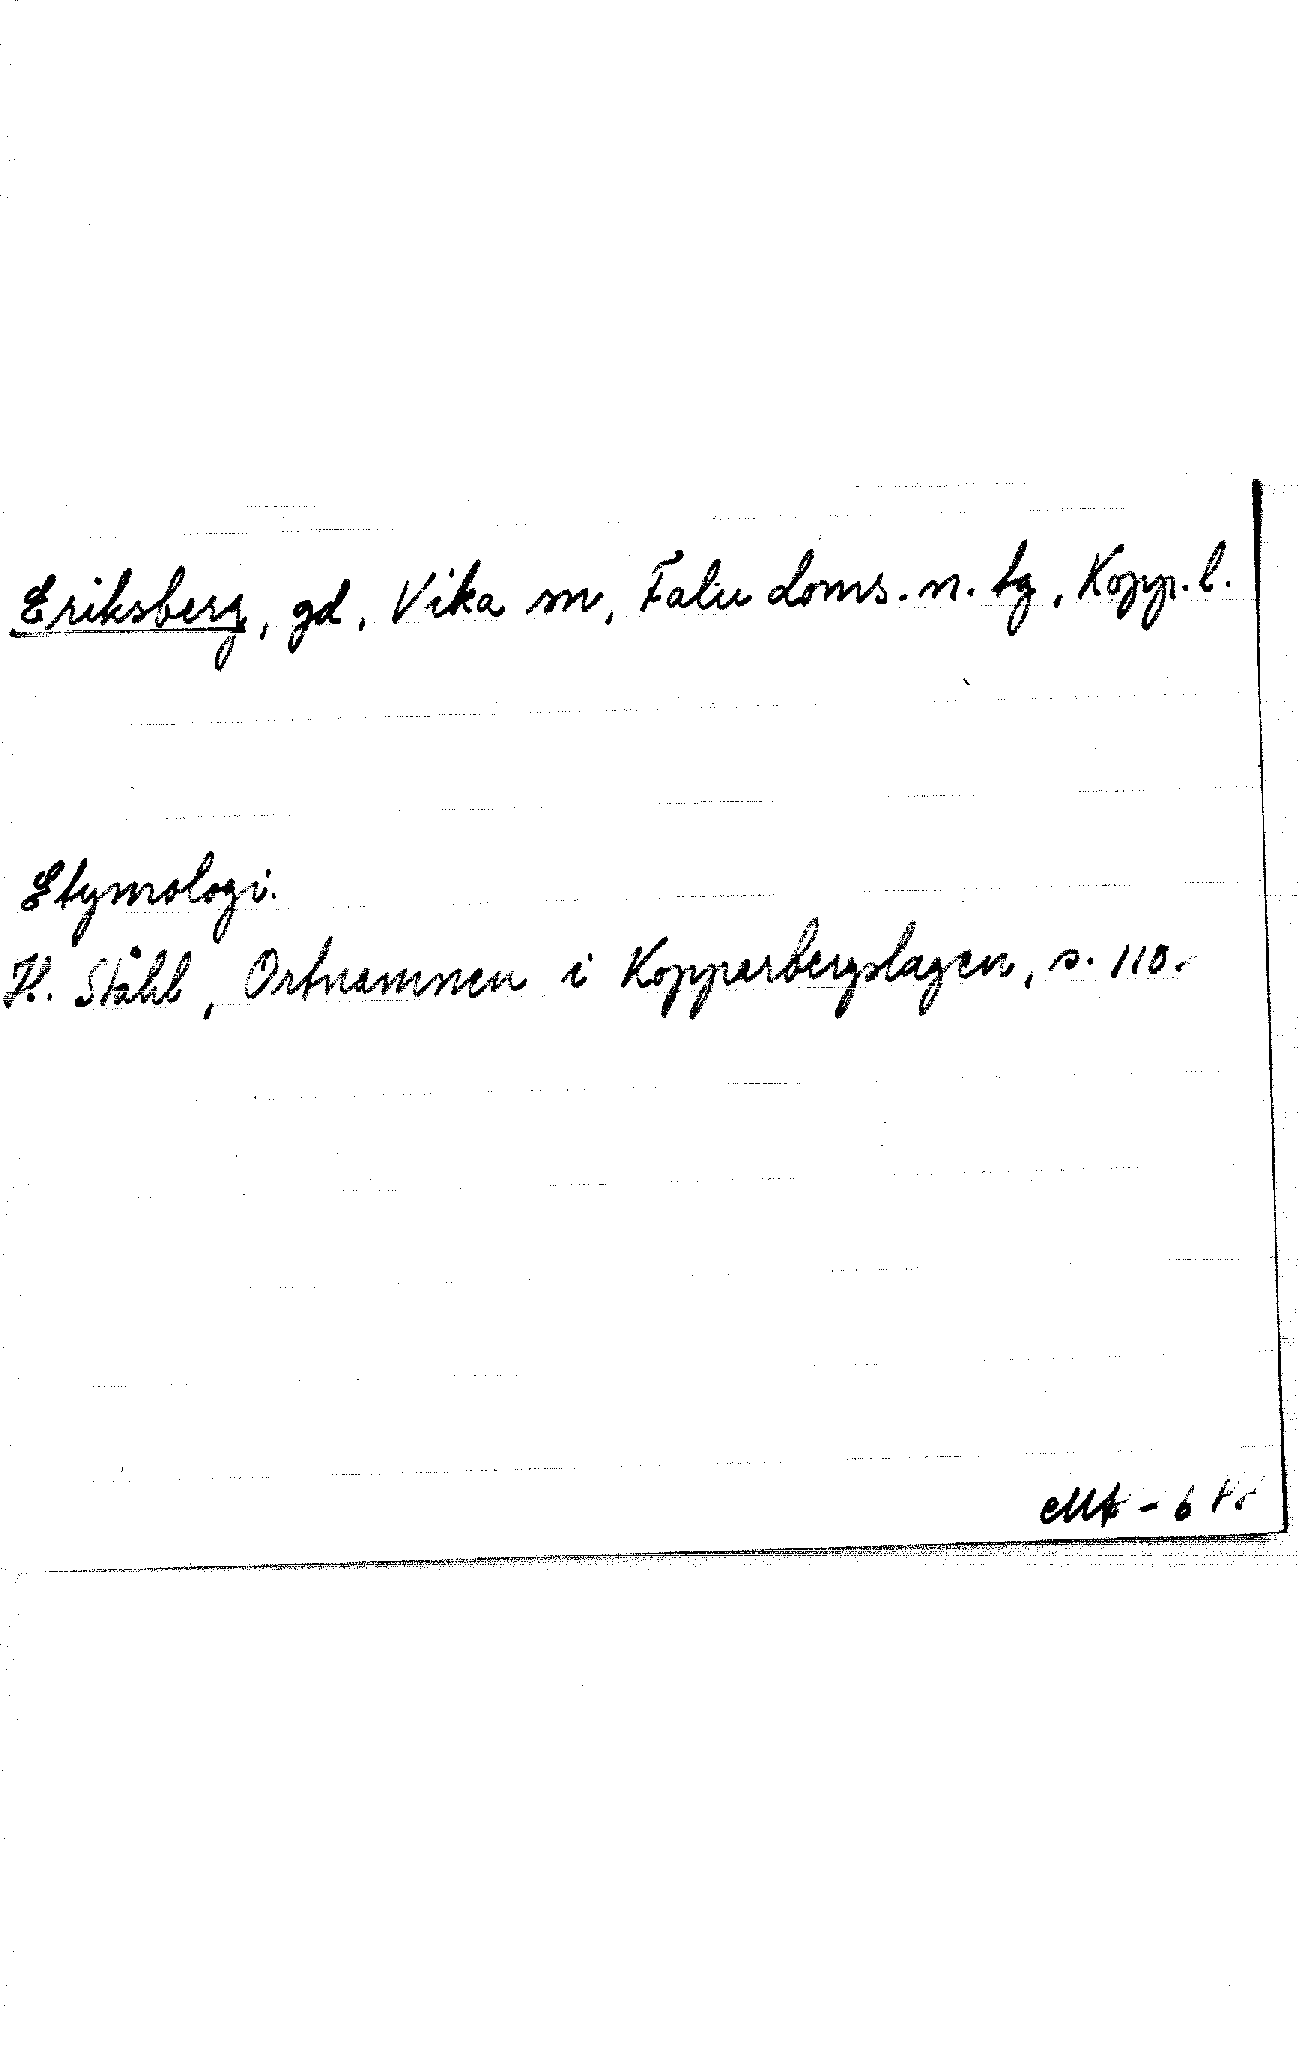 Eriksberg, gd, Vika sn, Falu doms. n. tg, Kopp. l.
Etymologi.
H. Ståhl, Ortnamnen i Kopparbergslagen, s. 110.